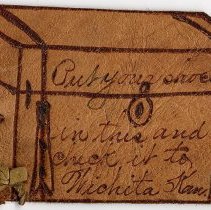 Put your shoe
in this and
check it to
Wichita Kans